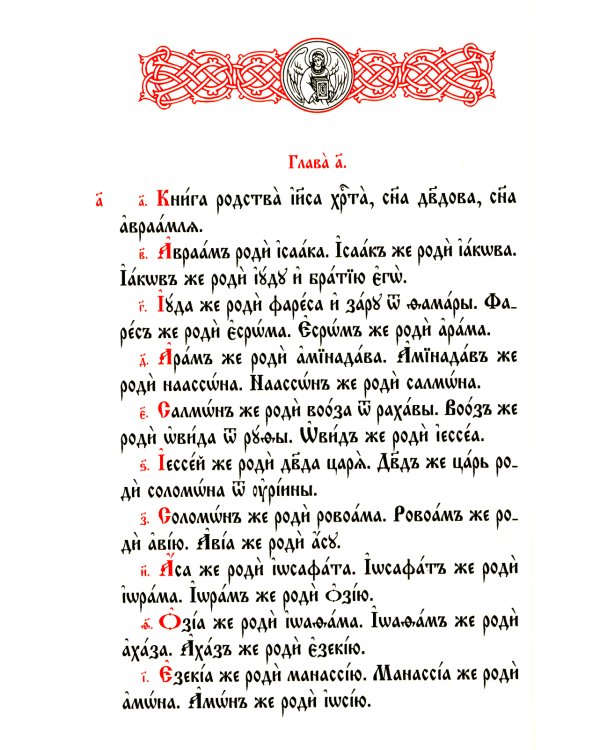 Глава̀ а҃.
а҃ а҃. Кни́га родства̀ і҆и҃са хрⷭ҇та̀, сн҃а дв҃дова, сн҃а
а҆враа́млѧ.
в҃. А҆враа́мъ родѝ і҆саа́ка. І҆саа́къ же родѝ і҆а́кѡва.
І҆а́кѡвъ же родѝ і҆ꙋ́дꙋ и҆ бра́тїю є҆гѡ̀.
г҃. І҆ꙋ́да же родѝ фаре́са и҆ за́рꙋ ѿ ѳама́ры. Фа-
ре́съ же родѝ є҆срѡ́ма. Є҆срѡ́мъ же родѝ а҆ра́ма.
д҃. А҆ра́мъ же родѝ а҆мїнада́ва. А҆мїнада́въ же
родѝ наассѡ́на. Наассѡ́нъ же родѝ салмѡ́на.
є҃. Салмѡ́нъ же родѝ воо́за ѿ раха́вы. Воо́зъ же
родѝ ѡ҆ви́да ѿ рꙋ́ѳы. Ѡ҆ви́дъ же родѝ і҆ессе́а.
ѕ҃. І҆ессе́й же родѝ дв҃да царѧ̀. Дв҃дъ же ца́рь ро-
дѝ соломѡ́на ѿ ᲂу҆рі́ины.
з҃. Соломѡ́нъ же родѝ ровоа́ма. Ровоа́мъ же ро-
дѝ а҆ві́ю. А҆ві́а же родѝ а҆́сꙋ.
и҃. А҆́са же родѝ і҆ѡсафа́та. І҆ѡсафа́тъ же родѝ
і҆ѡра́ма. І҆ѡра́мъ же родѝ ѻ҆зі́ю.
ѳ҃. Ѻ҆зі́а же родѝ і҆ѡаѳа́ма. І҆ѡаѳа́мъ же родѝ
а҆ха́за. А҆ха́зъ же родѝ є҆зекі́ю.
і҃. Є҆зекі́а же родѝ манассі́ю. Манассі́а же родѝ
а҆мѡ́на. А҆мѡ́нъ же родѝ і҆ѡсі́ю.